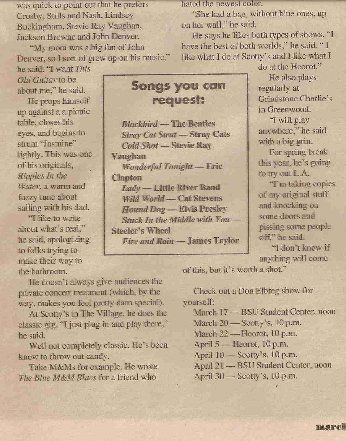 was quick to point out that he prefers
Crosby, Stills and Nash, Lindsey
Buckingham, Stevie Ray Vaughan,
Jackson Browne and John Denver.
"My mom was a big fan of John
Denver, so I sort of grew up on his music,"
he said. "I want This
Old Guitar to be
about me," he said.
He props himself
up against a a picnic
table, closes his
eyes, and begins to
strum "Jasmine"
lightly. This was one
of his originals,
Hippies In the
Water, a warm and
fuzzy tune about
sailing with his dad.
"I like to write
about what's real,"
he said, apologizing
to folks trying to
make their way to
the bathroom.
He doesn't always give audiences the
private concert treatment (which, by the
way, makes you feel pretty darn special).
At Scotty's in The Village, he does the
classic gig. "I just plug in and play there,"
he said.
Well not completely classic. He's been
known to throw out candy.
Take M&Ms for example. He wrote
The Blue M&M Blues for a friend who
Songs you can
request:
Blackbird — The Beatles
Stray Cat Strut — Stray Cats
Cold Shot — Stevie Ray
Vaughan
Wonderful Tonight — Eric
Clapton
Lady — Little River Band
Wild World — Cat Stevens
Hound Dog — Elvis Presley
Stuck In the Middle with You —
Steeler's Wheel
Fire and Rain — James Taylor
hated the newest color.
"She had a bag, without blue ones, up
on her wall," he said.
He says he likes both types of shows. "I
have the best of both worlds," he said. "I
like what I do at Scotty's and I like what I
do at the Heorot."
He also plays
regularly at
Grindstone Charlie's
in Greenwood.
"I will play
anywhere," he said
with a big grin.
For spring break
this year, he's going
to try out L.A.
"I'm taking copies
of my original stuff
and knocking on
some doors and
pissing some people
off," he said.
"I don't know if
anything will come
of this, but it's worth a shot."
Check out a Don Elbing show, for
yourself:
March 17 — BSU Student Center, noon
March 20 — Scotty's, 10 p.m.
March 22 — Heorot, 10 p.m.
April 5 — Heorot, 10 p.m.
April 10 — Scotty's, 10 p.m.
April 21 — BSU Student Center, noon
April 30 — Scotty's, 10 p.m.
march